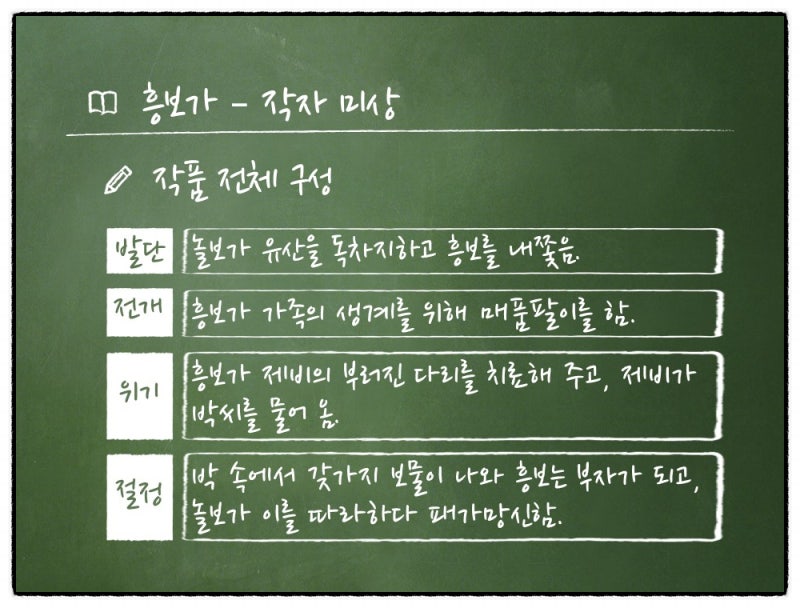 흥보가 - 작자 미상
작품 전체 구성
발단
놀보가 유산을 독차지하고 흥보를 내쫓음.
전개
흥보가 가족의 생계를 위해 매품팔이를 함.
위기
흥보가 제비의 부러진 다리를 치료해 주고, 제비가
박씨를 물어 옴.
절정
박 속에서 갖가지 보물이 나와 흥보는 부자가 되고,
놀보가 이를 따라하다 패가망신함.